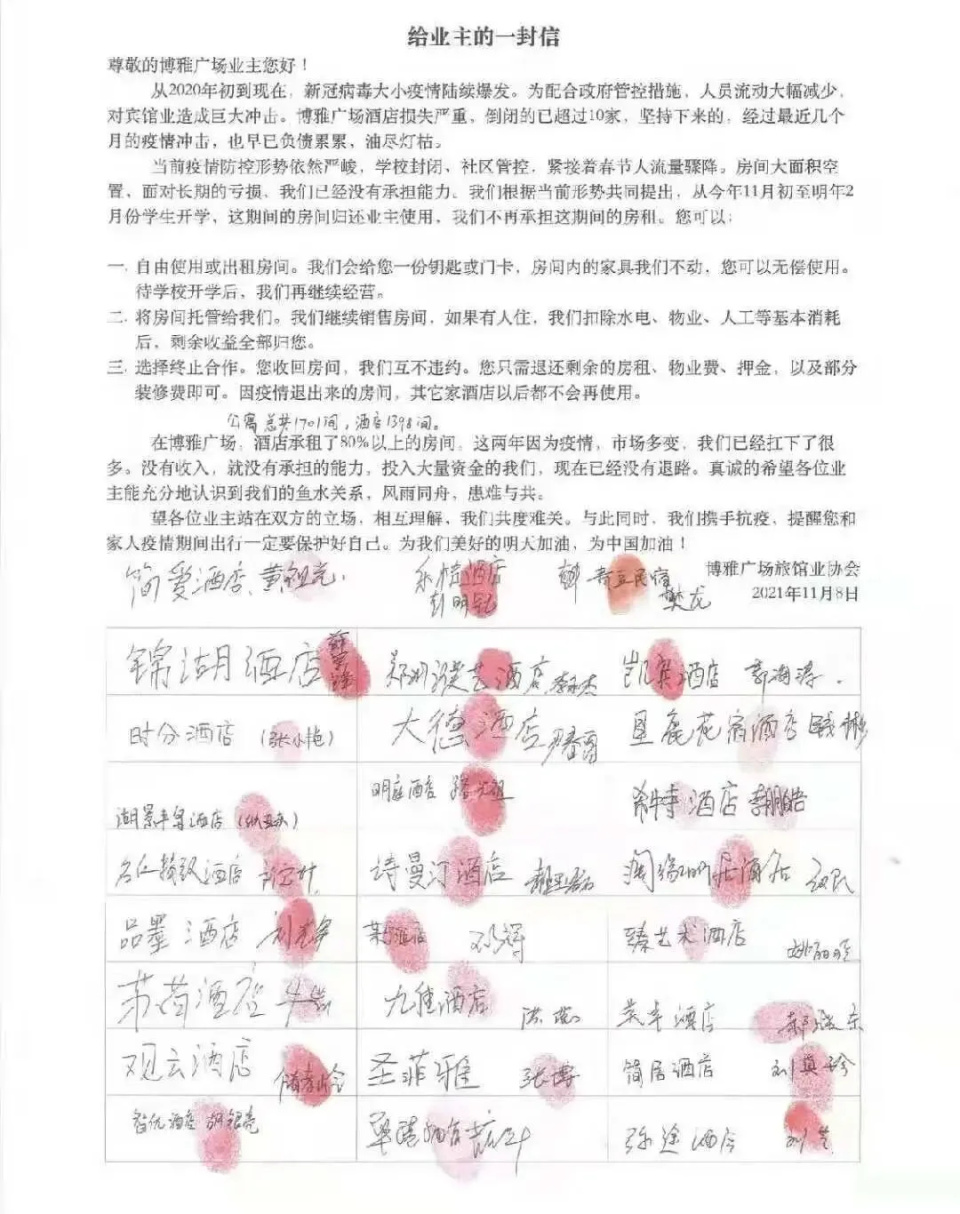 给业主的一封信
尊敬的博雅广场业主您好！
从2020年初到现在，新冠病毒大小疫情陆续爆发。为配合政府管控措施，人员流动大幅减少，
对宾馆业造成巨大冲击。博雅广场酒店损失严重，倒闭的已超过10家，坚持下来的，经过最近几个
月的疫情冲击，也早已负债累累，油尽灯枯。
当前疫情防控形势依然严峻，学校封闭、社区管控，紧接着春节人流量骤降。房间大面积空
置，面对长期的亏损，我们已经没有承担能力。我们根据当前形势共同提出，从今年11月初至明年2
月份学生开学，这期间的房间归还业主使用，我们不再承担这期间的房租。您可以：
一. 自由使用或出租房间。我们会给您一份钥匙或门卡，房间内的家具我们不动，您可以无偿使用。
待学校开学后，我们再继续经营。
二. 将房间托管给我们。我们继续销售房间，如果有人住，我们扣除水电、物业、人工等基本消耗
后，剩余收益全部归您。
三. 选择终止合作。您收回房间，我们互不违约。您只需退还剩余的房租、物业费、押金，以及部分
装修费即可。因疫情退出来的房间，其它家酒店以后都不会再使用。
公寓总共1701间，酒店1398间。
在博雅广场，酒店承租了80%以上的房间，这两年因为疫情，市场多变，我们已经扛下了很
多。没有收入，就没有承担的能力，投入大量资金的我们，现在已经没有退路。真诚的希望各位业
主能充分地认识到我们的鱼水关系，风雨同舟，患难与共。
望各位业主站在双方的立场，相互理解，我们共度难关。与此同时，我们携手抗疫，提醒您和
家人疫情期间出行一定要保护好自己。为我们美好的明天加油，为中国加油！
博雅广场旅馆业协会
2021年11月8日
简爱酒店 黄祖亮 酒店 民宿 樊龙
锦湖酒店 酒店 凯宾酒店 郭海涛
时分酒店（张小艳） 大德酒店 花宿酒店
湖景 酒店 明庭酒店 希特酒店
酒店 诗曼汀酒店 酒店
品墨酒店 酒店 邓辉 臻艺术酒店
茅茴酒店 九佳酒店 酒店
观云酒店 圣菲雅 张博 简居酒店
酒店 弥途酒店 刘